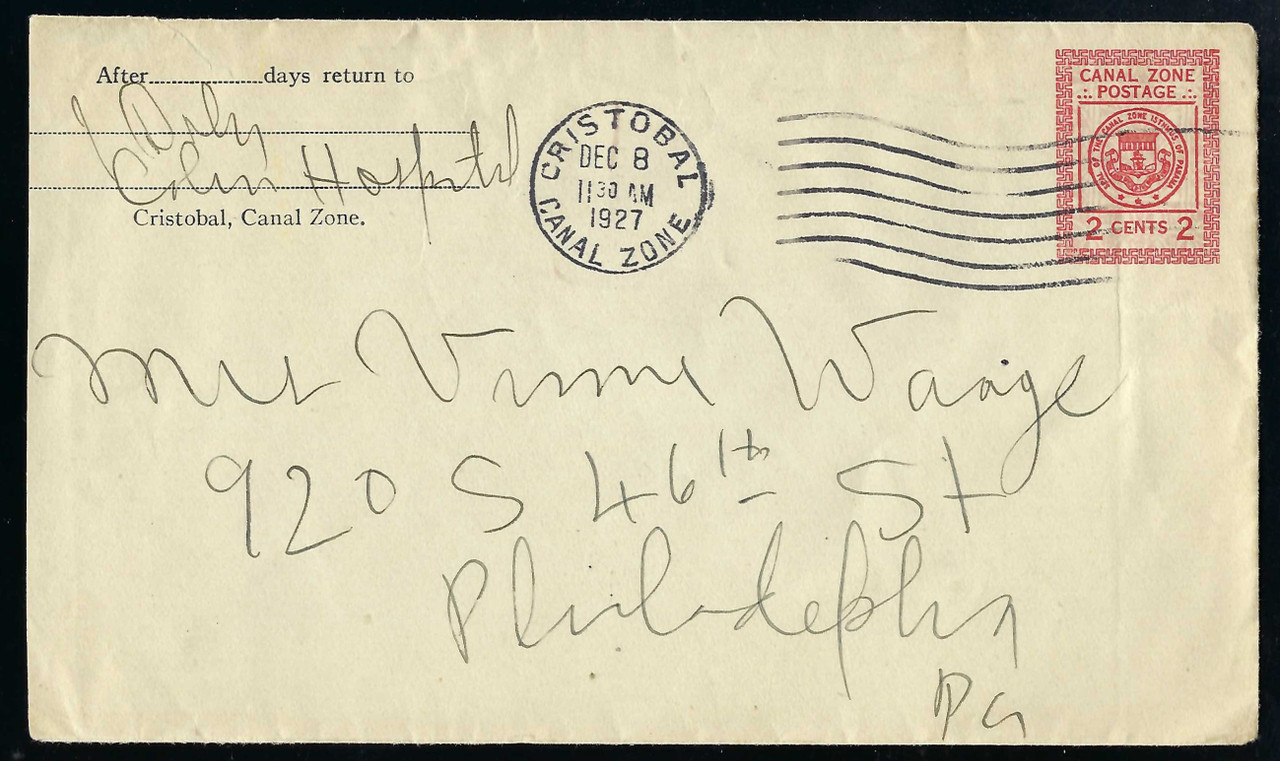 After............days return to
Colon Hospital
Cristobal, Canal Zone.
CRISTOBAL
DEC 8
11 30 AM
1927
CANAL ZONE
CANAL ZONE
POSTAGE
SEAL OF THE CANAL ZONE ISTHMUS OF PANAMA
2 CENTS 2
Waage
920 S 46th St
Philadelphia
Pa